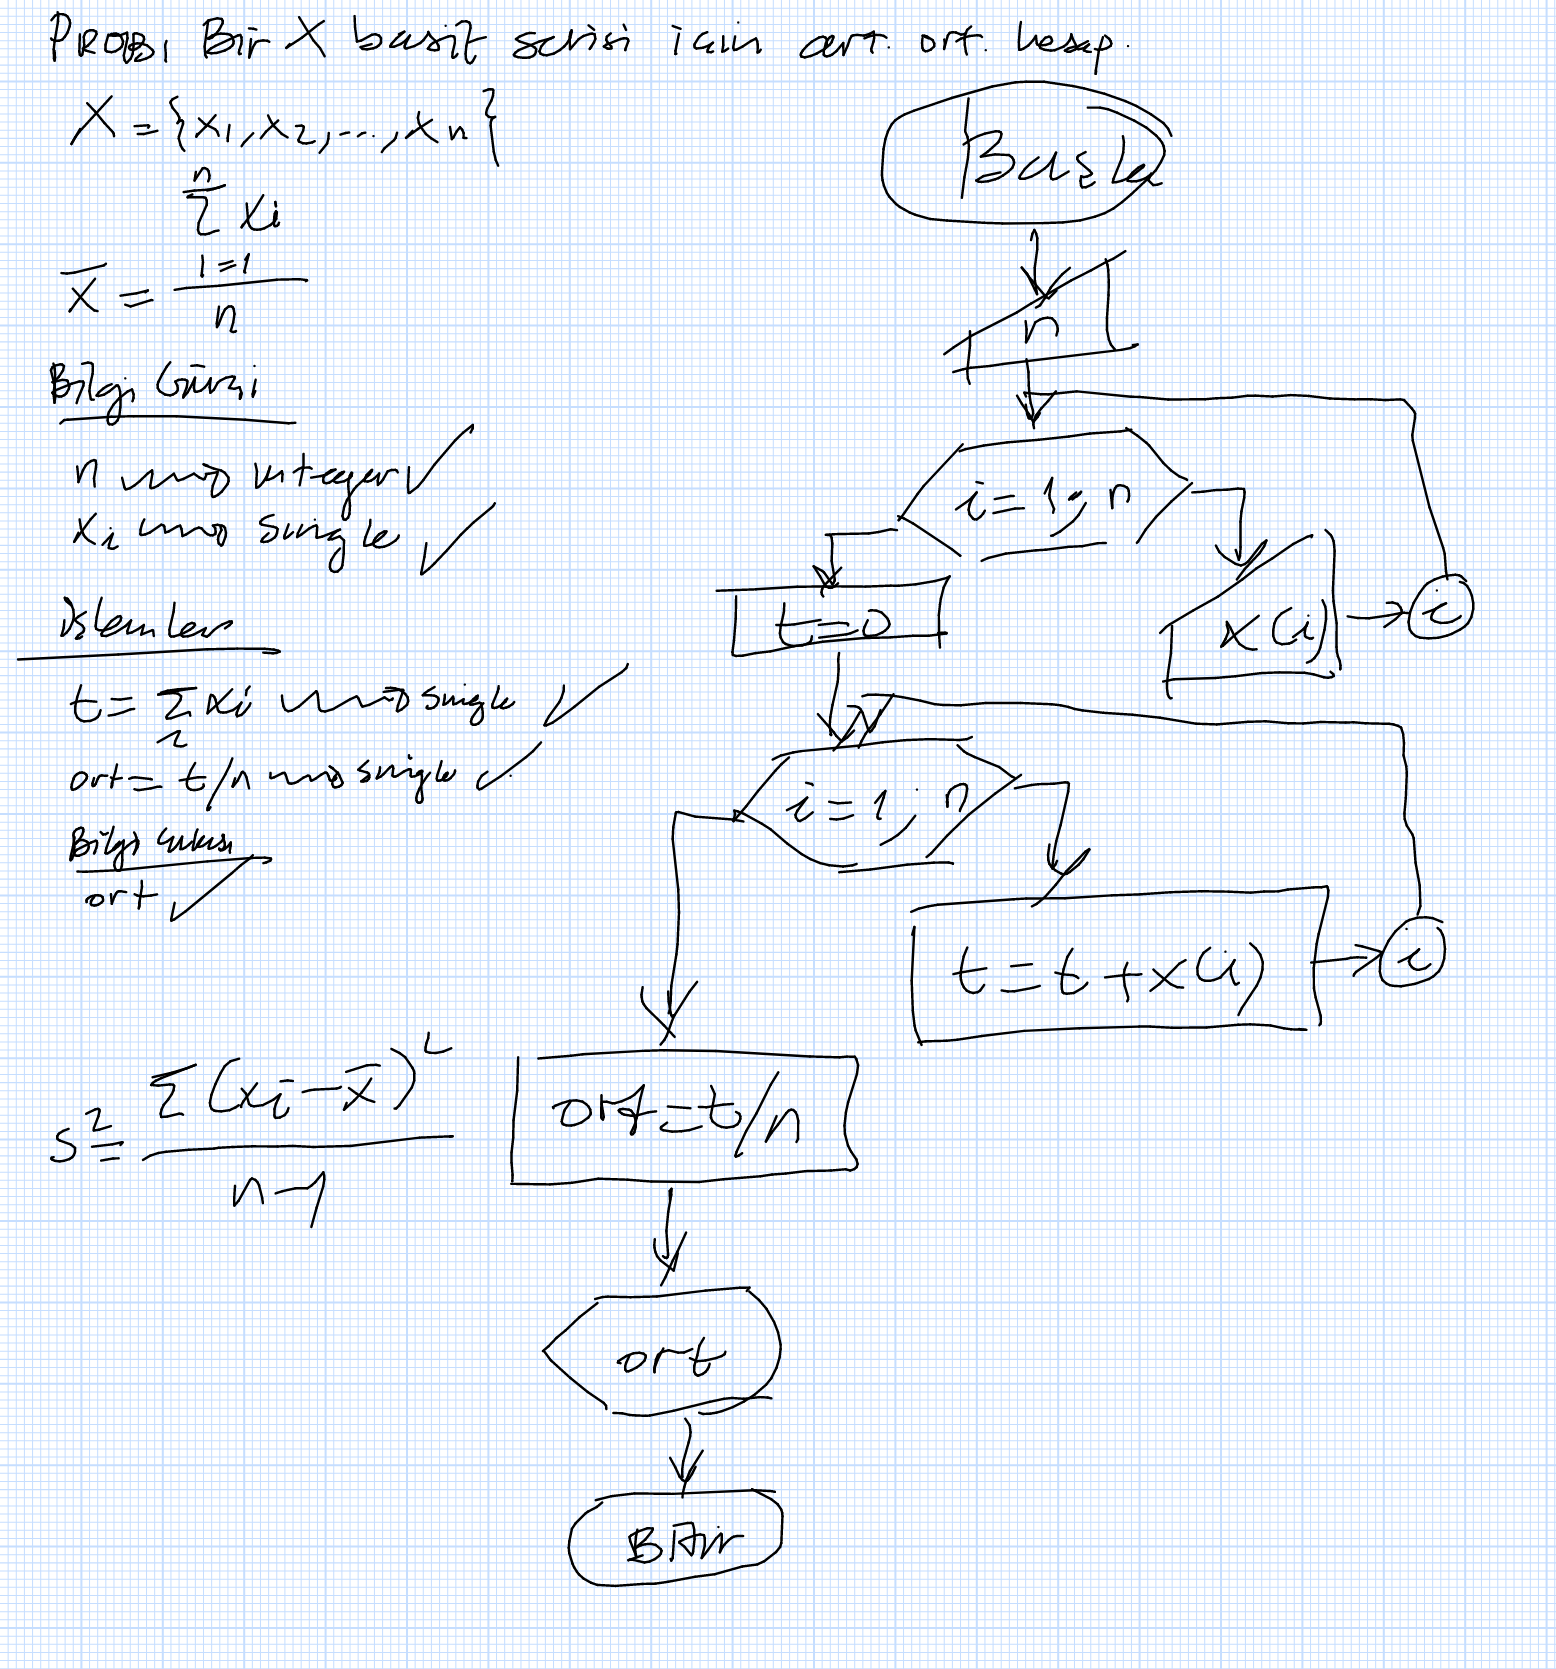 PROB. Bir X basit serisi için art. ort. hesap.
X = {x1, x2, ..., xn}
n
Σ xi
i=1
x̄ =
n
Bilgi Girişi
n → integer ✓
xi → single ✓
işlemler
t = Σ xi → single ✓
i
ort = t/n → single ✓
Bilgi çıkışı
ort ✓
s² = Σ(xi - x̄)²
n-1
Başla
n
i = 1; n
x(i)
i
t=0
i = 1; n
t = t + x(i)
i
ort = t/n
ort
Bitir